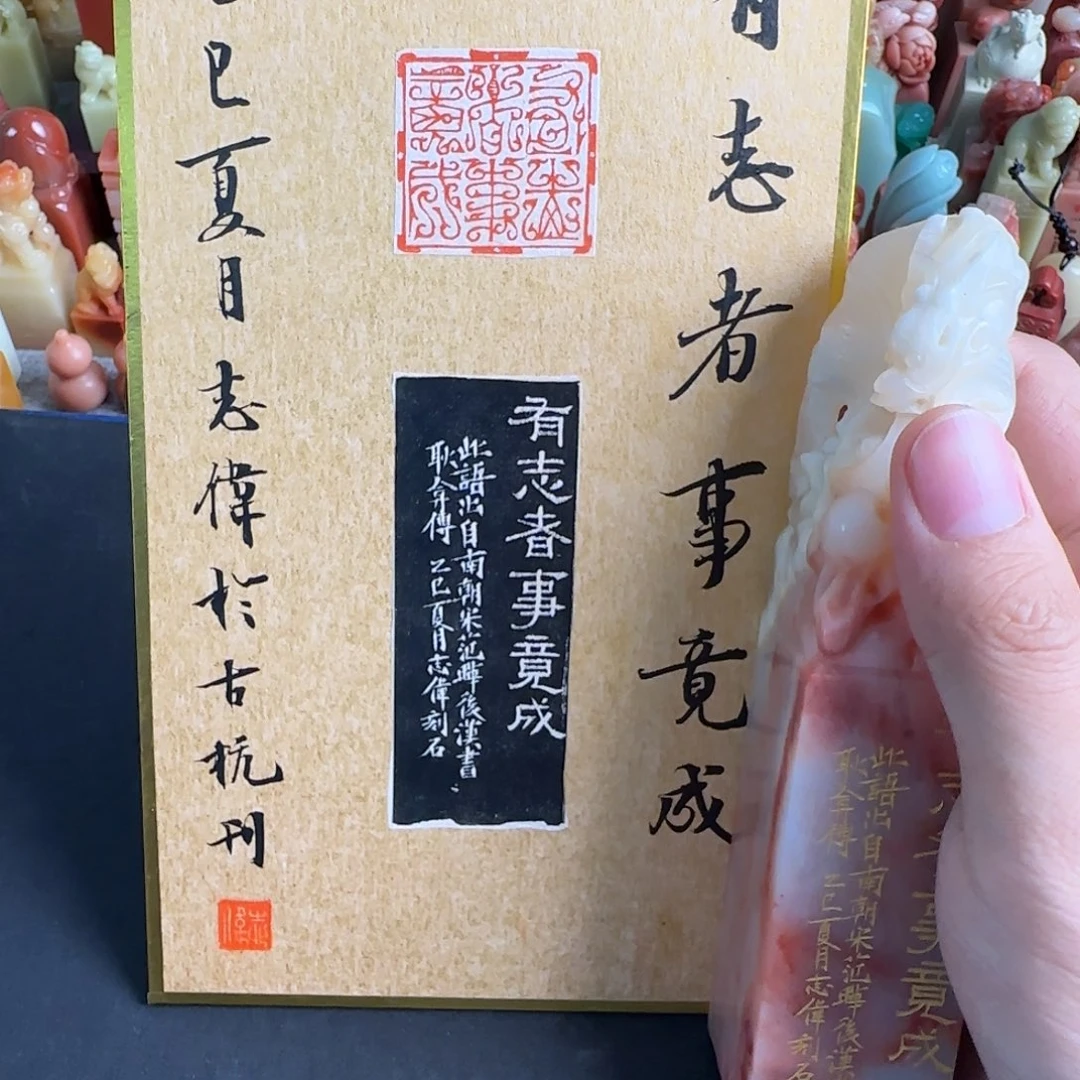 有志者事竟成
乙巳夏月志偉於古杭刊
有志者事竟成
有志者事竟成
此語出自南朝宋范曄後漢書
耿弇傳 乙巳夏月志偉刻石
志偉
事竟成
此語出自南朝宋范曄後漢
耿弇傳 乙巳夏月志偉刻石